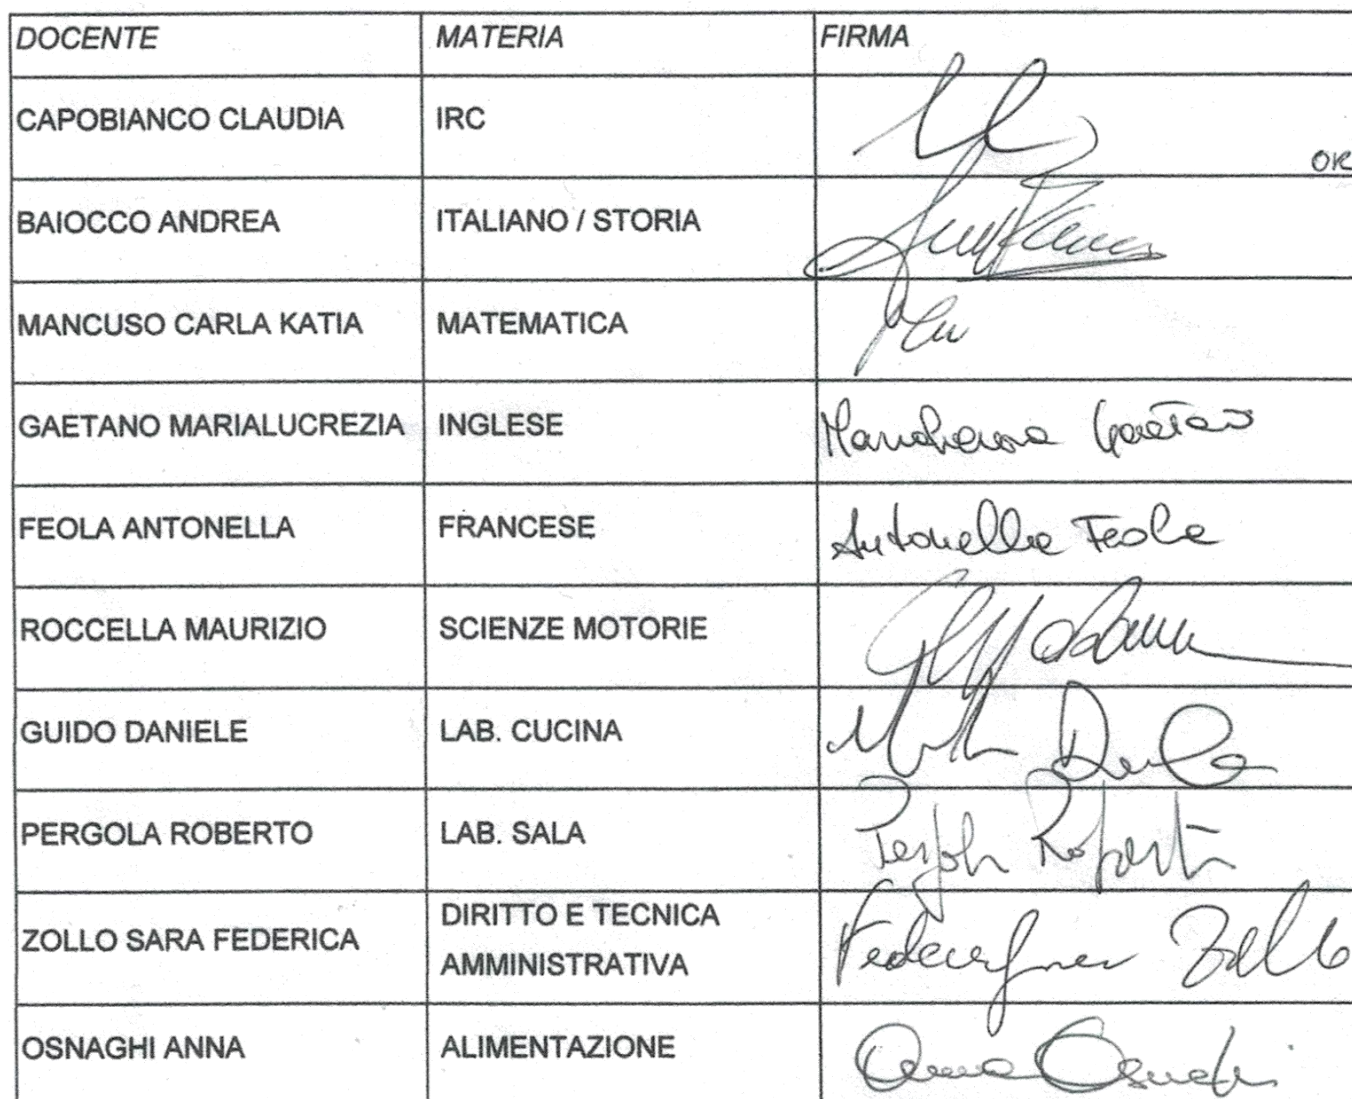 DOCENTE MATERIA FIRMA
CAPOBIANCO CLAUDIA IRC
OK
BAIOCCO ANDREA ITALIANO / STORIA
MANCUSO CARLA KATIA MATEMATICA
GAETANO MARIALUCREZIA INGLESE Gaetano
FEOLA ANTONELLA FRANCESE Antonella Feola
ROCCELLA MAURIZIO SCIENZE MOTORIE
GUIDO DANIELE LAB. CUCINA
PERGOLA ROBERTO LAB. SALA Pergola Roberto
DIRITTO E TECNICA
ZOLLO SARA FEDERICA Zollo
AMMINISTRATIVA
OSNAGHI ANNA ALIMENTAZIONE Anna Osnaghi